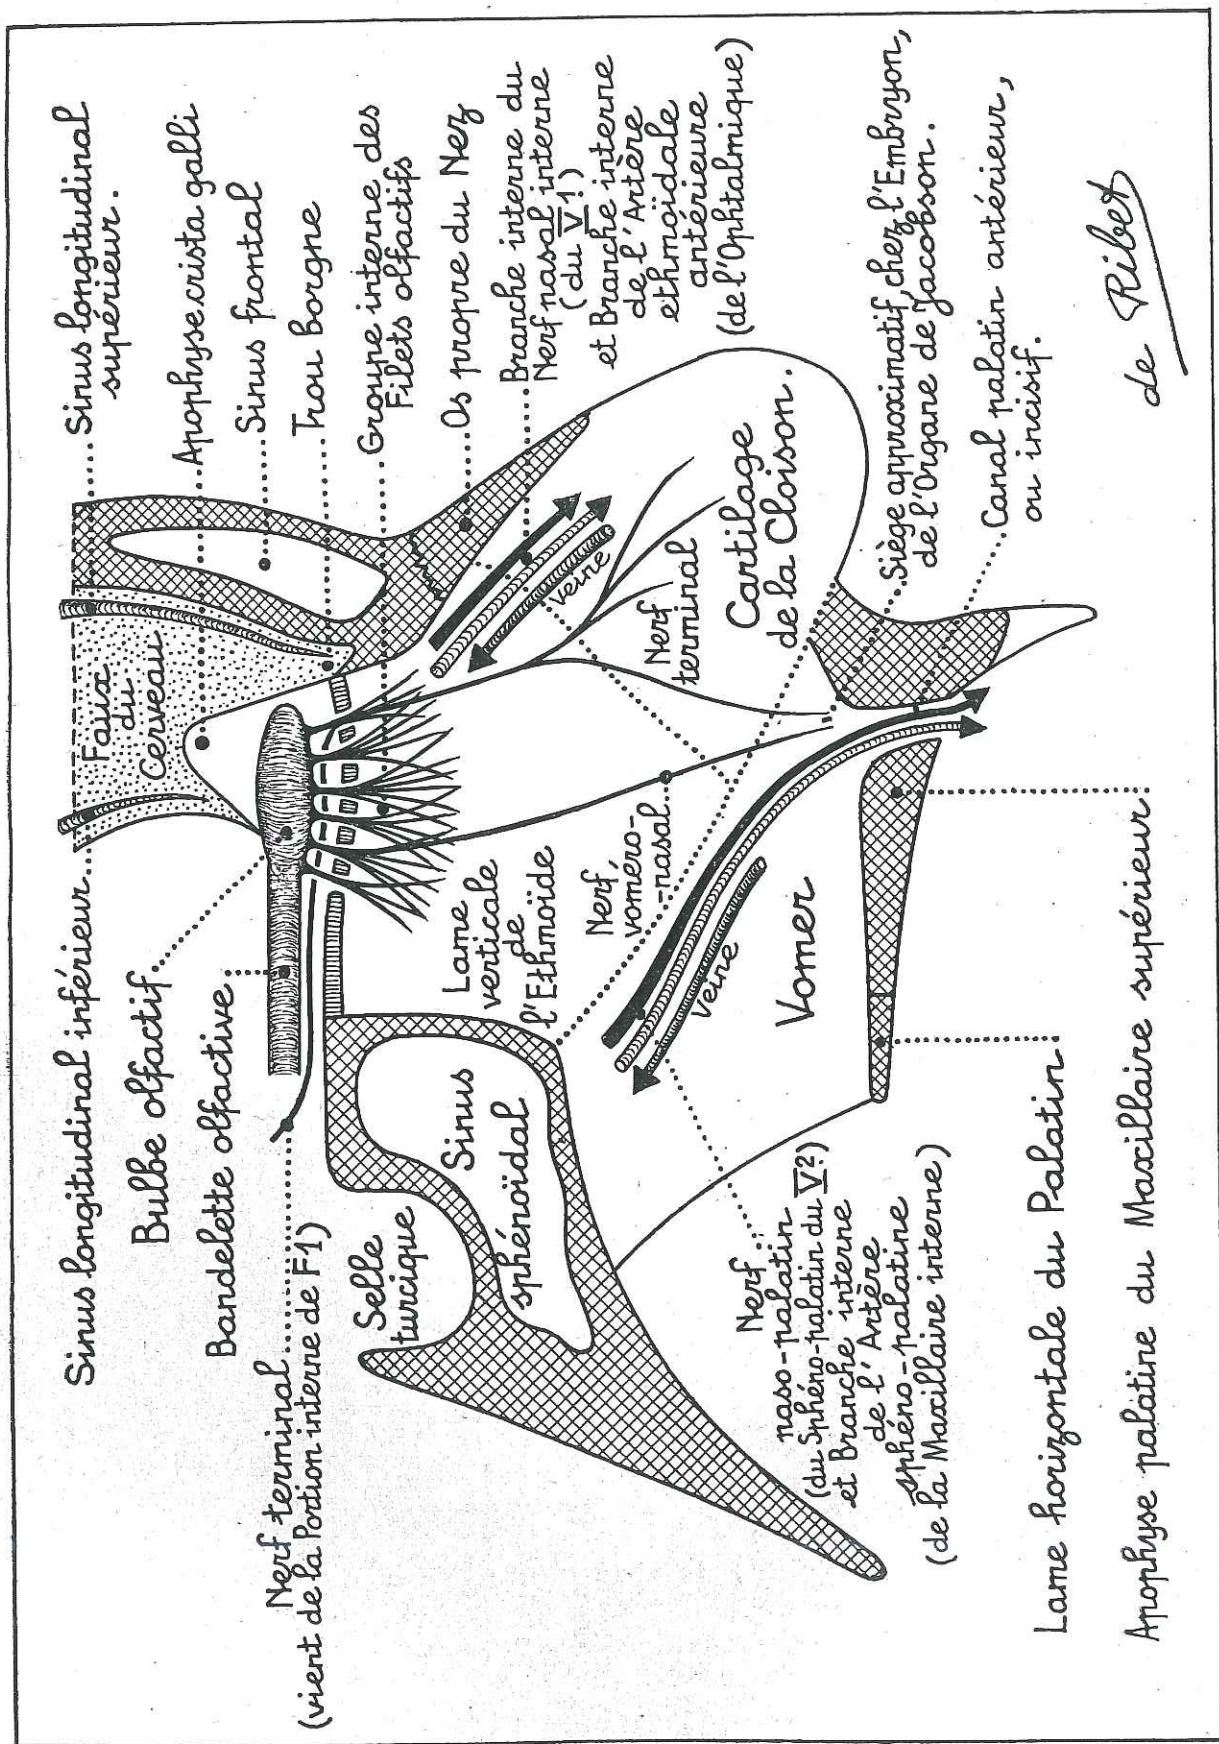 Sinus longitudinal inférieur
Bulbe olfactif
Bandelette olfactive
Nerf terminal
(vient de la Portion interne de F1)
Selle
turcique
Sinus
sphénoïdal
Nerf
naso-palatin
(du Sphéno-palatin du V2)
et Branche interne
de l'Artère
sphéno-palatine
(de la Maxillaire interne)
Lame horizontale du Palatin
Apophyse palatine du Maxillaire supérieur
Faux
du
Cerveau
Lame
verticale
de
l'Ethmoïde
Nerf
voméro-
-nasal
Veine
Vomer
Nerf
terminal
Veine
Cartilage
de la Cloison.
Sinus longitudinal
supérieur.
Apophyse crista galli
Sinus frontal
Trou borgne
Groupe interne des
Filets olfactifs
Os propre du Nez
Branche interne du
Nerf nasal interne
(du V1)
et Branche interne
de l'Artère
ethmoïdale
antérieure
(de l'Ophtalmique)
Siège approximatif, chez l'Embryon,
de l'Organe de Jacobson.
Canal palatin antérieur,
ou incisif.
de Ribet